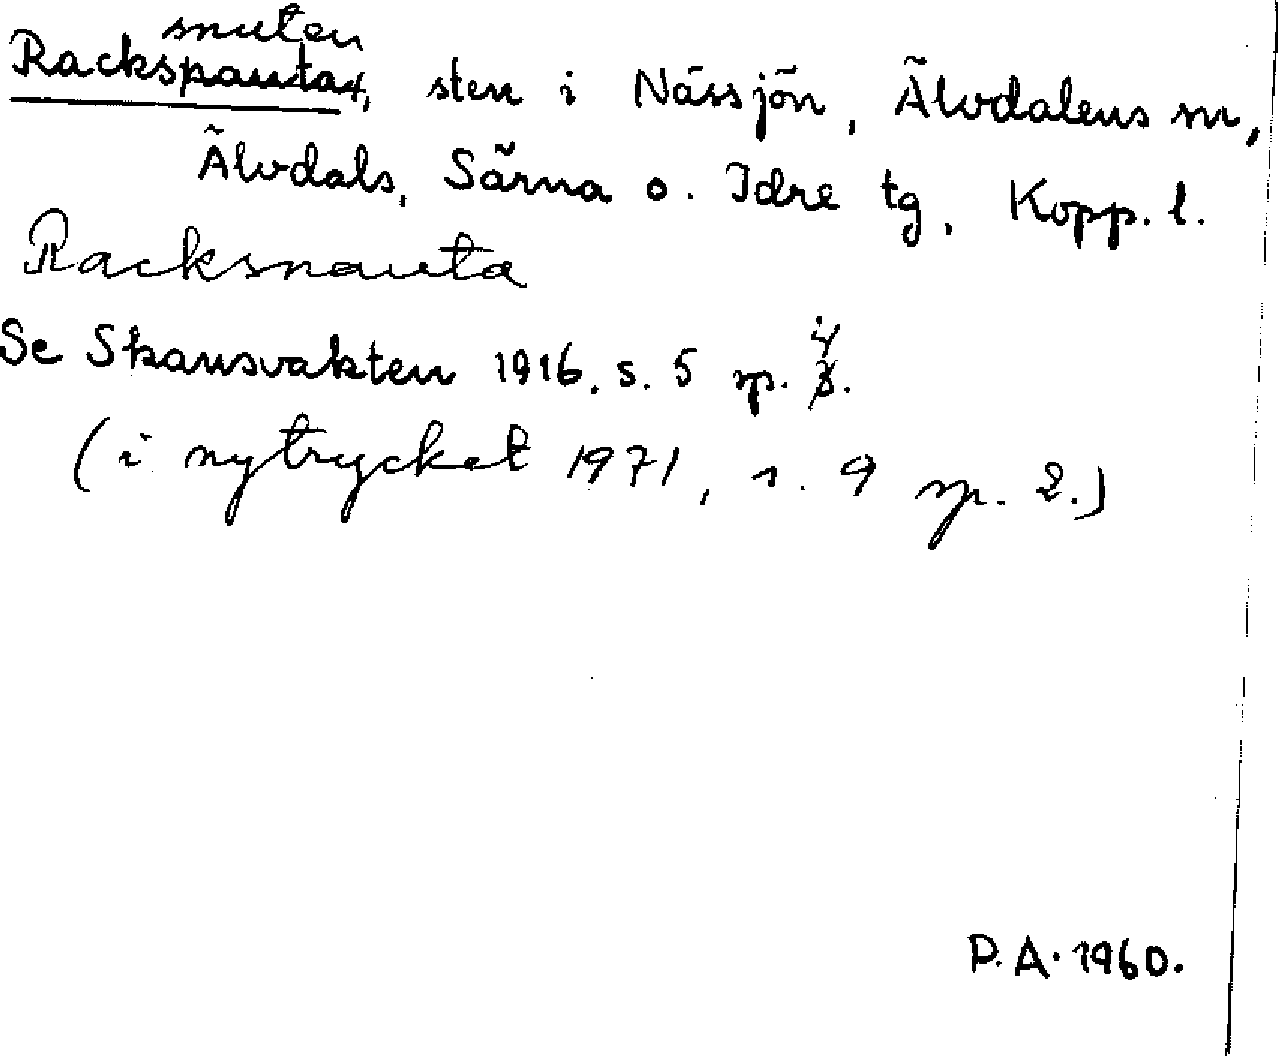 snuten
Rackspauta, sten i Nässjön, Älvdalens sn,
Älvdals, Särna o. Idre tg, Kopp. l.
Racksnauta
Se Skansvakten 1916, s. 5 sp.
(i nytrycket 1971, s. 9 sp. 2.)
P.A. 1960.